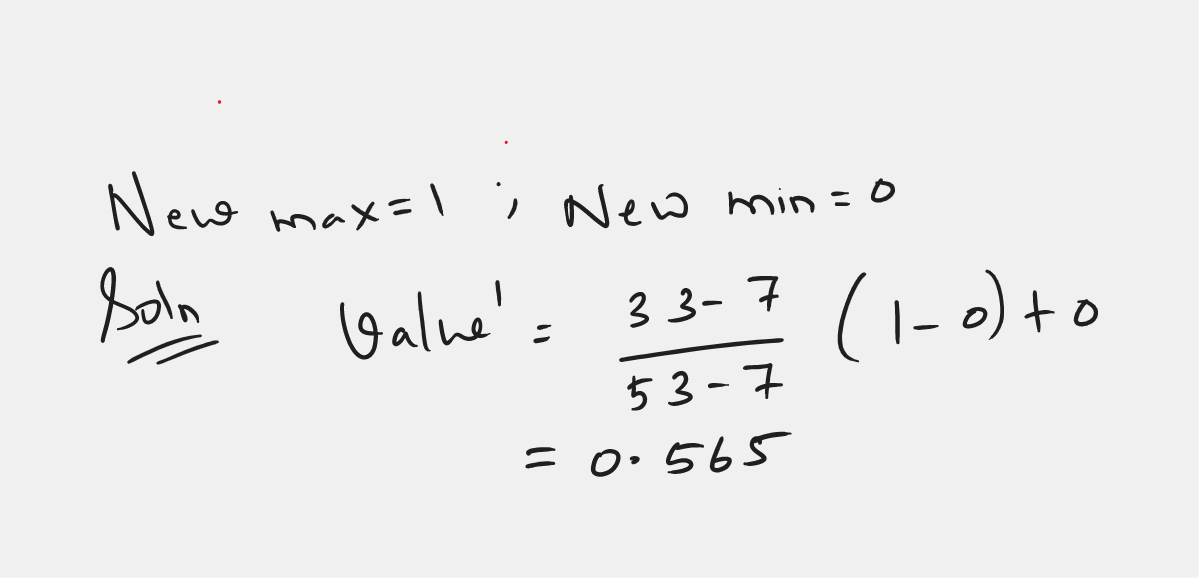 New max=1 ; New min=0
Soln Value' = 33-7 (1-0)+0
53-7
= 0.565